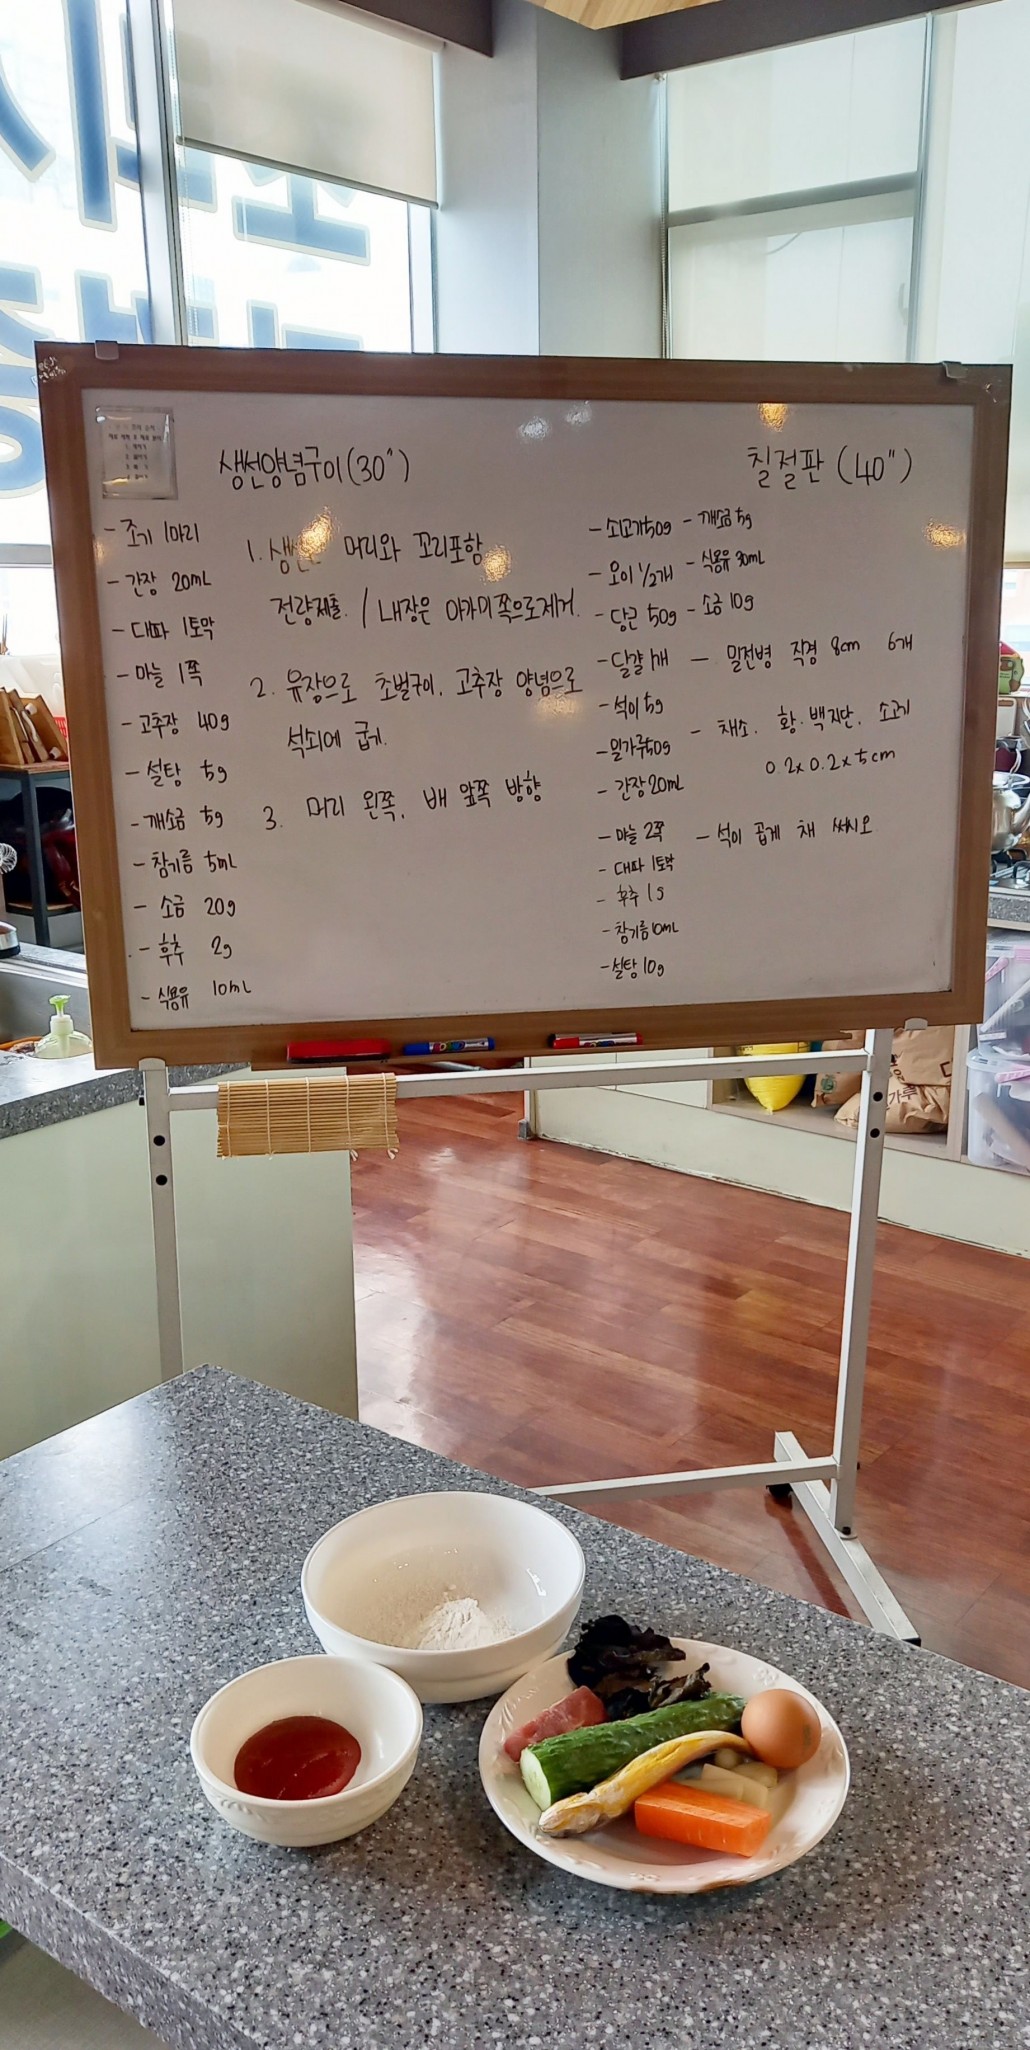 생선양념구이 (30")
- 조기 1마리
- 간장 20mL
- 대파 1토막
- 마늘 1쪽
- 고추장 40g
- 설탕 5g
- 깨소금 5g
- 참기름 5mL
- 소금 20g
- 후추 2g
- 식용유 10mL
1. 머리와 꼬리포함
전량제출. / 내장은 아가미쪽으로제거.
2. 유장으로 초벌구이. 고추장 양념으로
석쇠에 굽기.
3. 머리 왼쪽, 배 앞쪽 방향
칠절판 (40")
- 소고기50g
- 오이 1/2개
- 당근 50g
- 달걀 1개
- 석이 5g
- 밀가루50g
- 간장 20mL
- 마늘 2쪽
- 대파 1토막
- 후추 1g
- 참기름 10mL
- 설탕 10g
- 깨소금 5g
- 식용유 30mL
- 소금 10g
- 밀전병 직경 8cm 6개
- 채소. 황.백지단. 소고기
0.2x0.2x5cm
- 석이 곱게 채 써시오